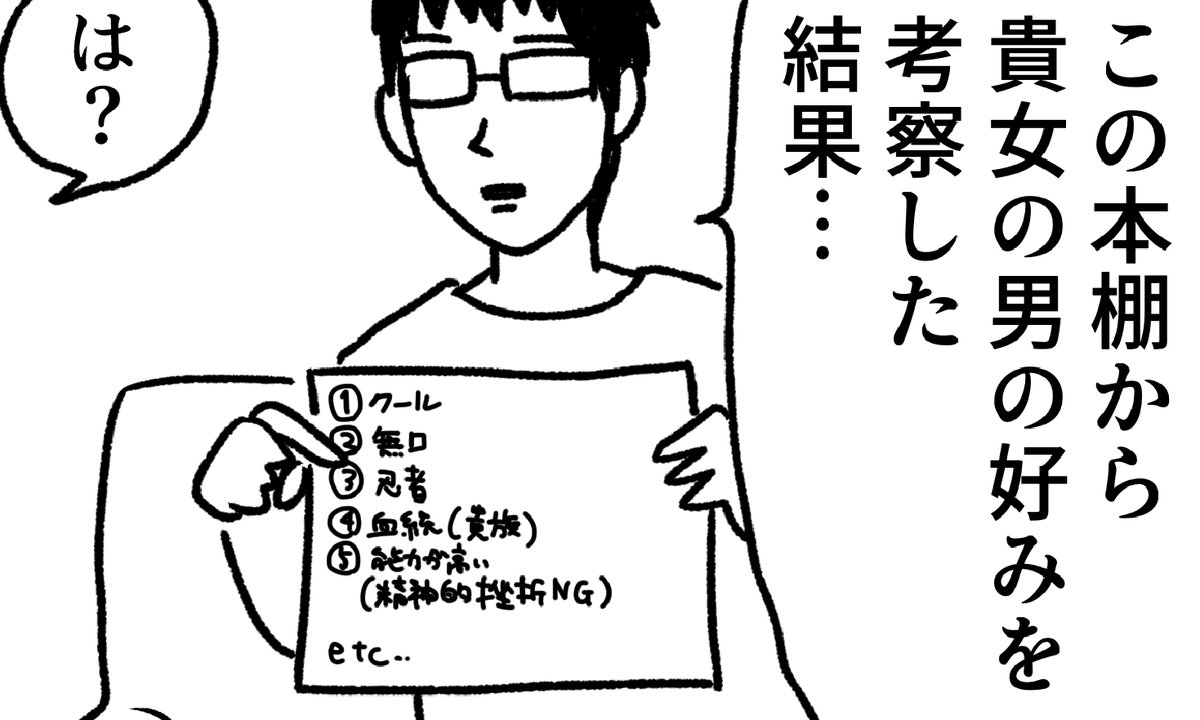 この本棚から
貴女の男の好みを
考察した
結果…
は？
①クール
②無口
③忍者
④血統(貴族)
⑤能力が高い
(精神的挫折NG)
etc..